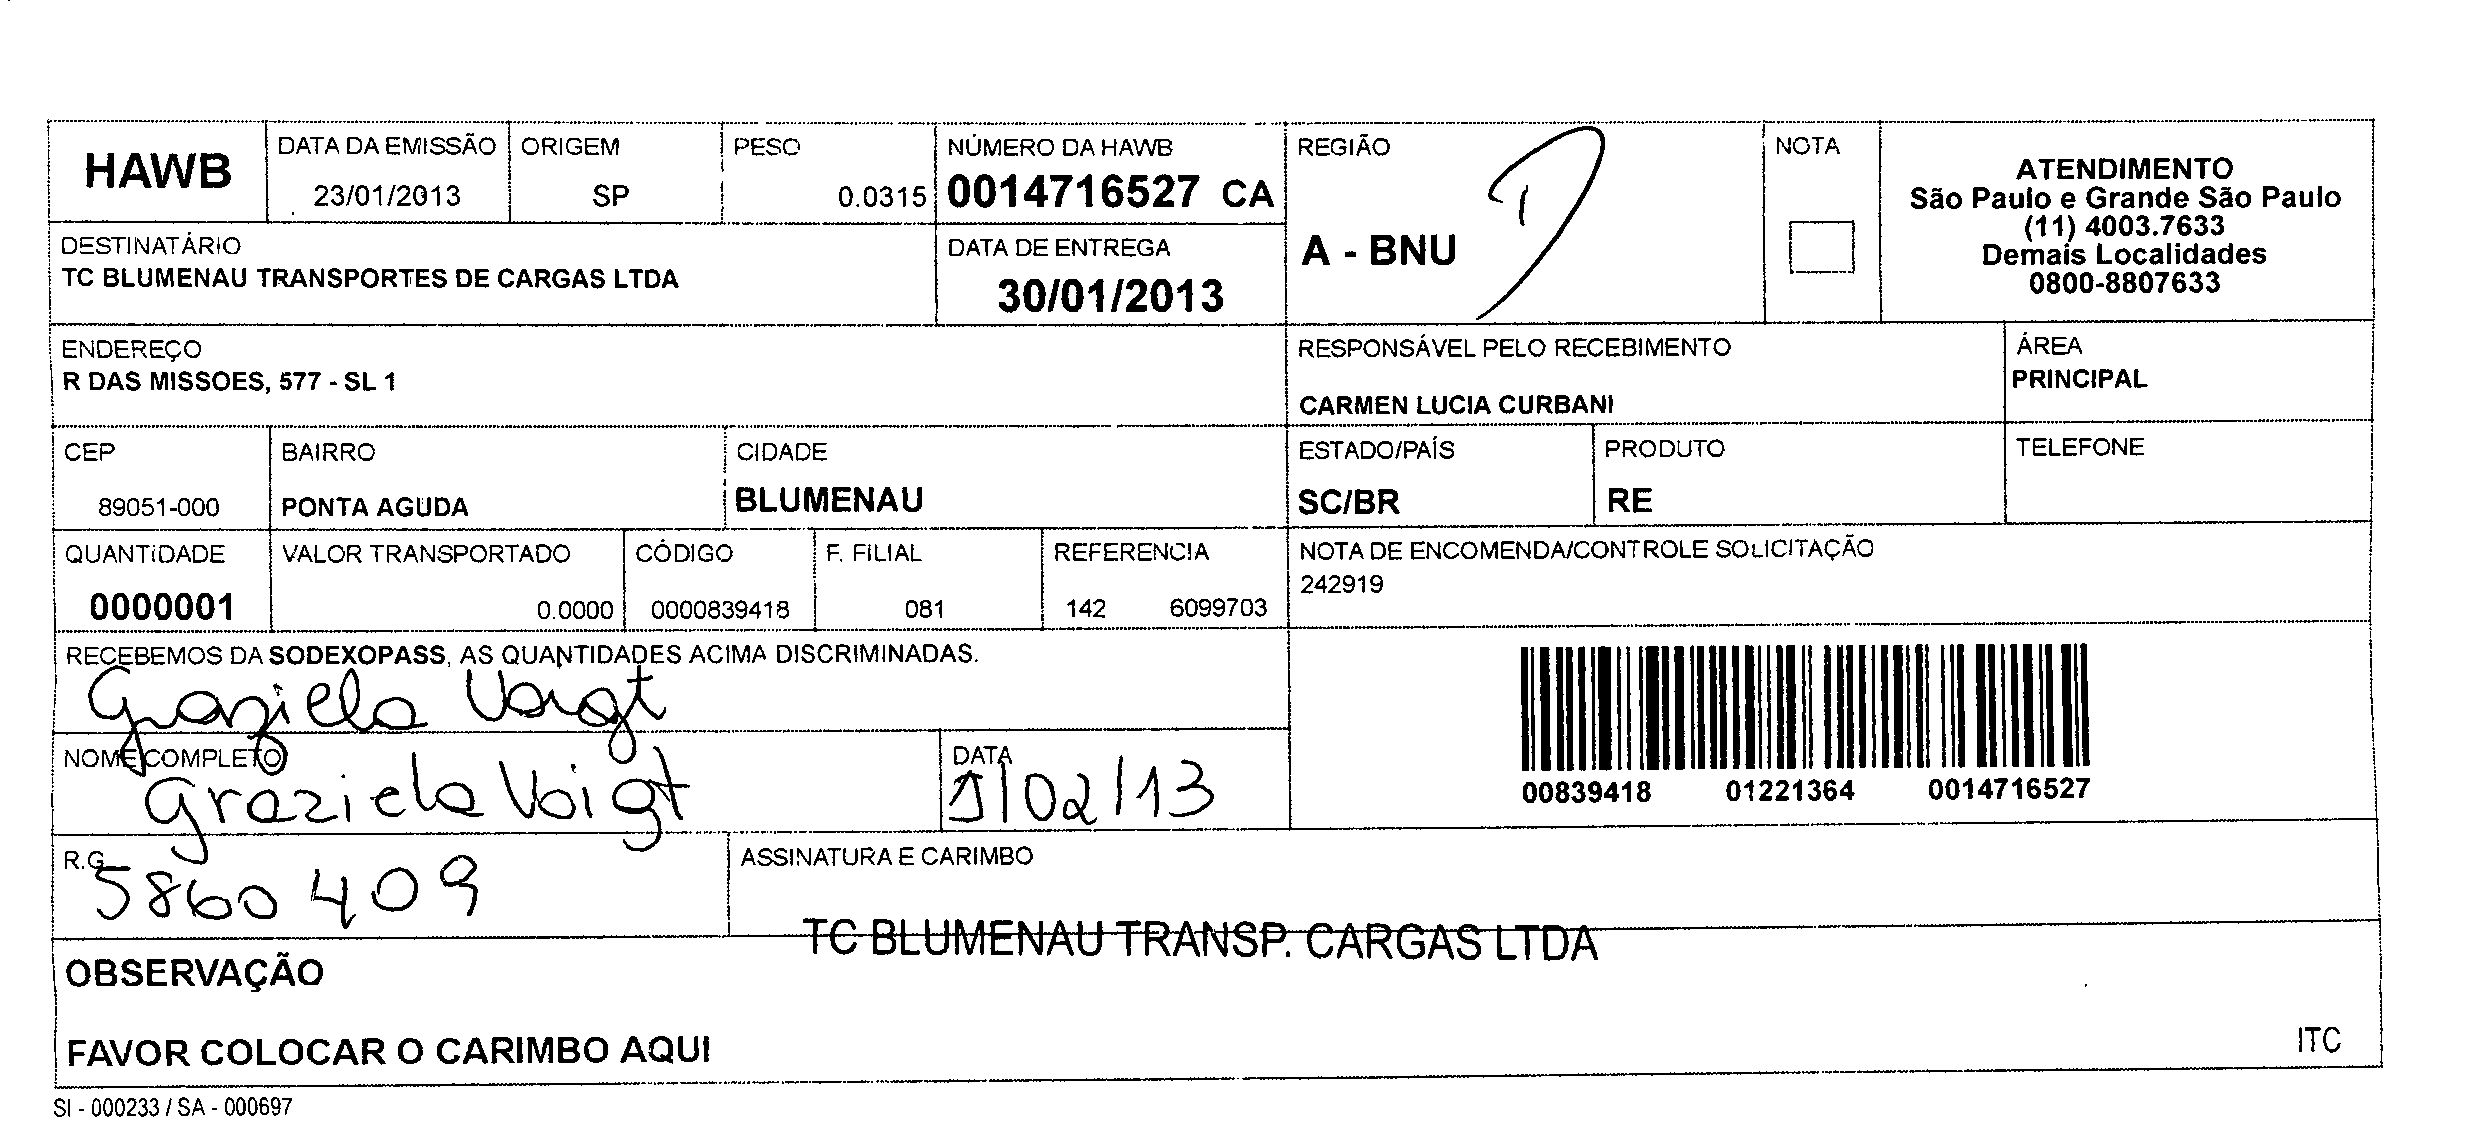 HAWB
DATA DA EMISSÃO
23/01/2013
ORIGEM
SP
PESO
0.0315
NÚMERO DA HAWB
0014716527 CA
REGIÃO
A - BNU
NOTA
ATENDIMENTO
São Paulo e Grande São Paulo
(11) 4003.7633
Demais Localidades
0800-8807633
DESTINATÁRIO
TC BLUMENAU TRANSPORTES DE CARGAS LTDA
DATA DE ENTREGA
30/01/2013
ENDEREÇO
R DAS MISSOES, 577 - SL 1
RESPONSÁVEL PELO RECEBIMENTO
CARMEN LUCIA CURBANI
ÁREA
PRINCIPAL
CEP
89051-000
BAIRRO
PONTA AGUDA
CIDADE
BLUMENAU
ESTADO/PAÍS
SC/BR
PRODUTO
RE
TELEFONE
QUANTIDADE
0000001
VALOR TRANSPORTADO
0.0000
CÓDIGO
0000839418
F. FILIAL
081
REFERENCIA
142 6099703
NOTA DE ENCOMENDA/CONTROLE SOLICITAÇÃO
242919
RECEBEMOS DA SODEXOPASS, AS QUANTIDADES ACIMA DISCRIMINADAS.
Graziela Voigt
NOME COMPLETO
Graziela Voigt
DATA
1/02/13
00839418 01221364 0014716527
R.G
5860409
ASSINATURA E CARIMBO
TC BLUMENAU TRANSP. CARGAS LTDA
OBSERVAÇÃO
FAVOR COLOCAR O CARIMBO AQUI
ITC
SI - 000233 / SA - 000697